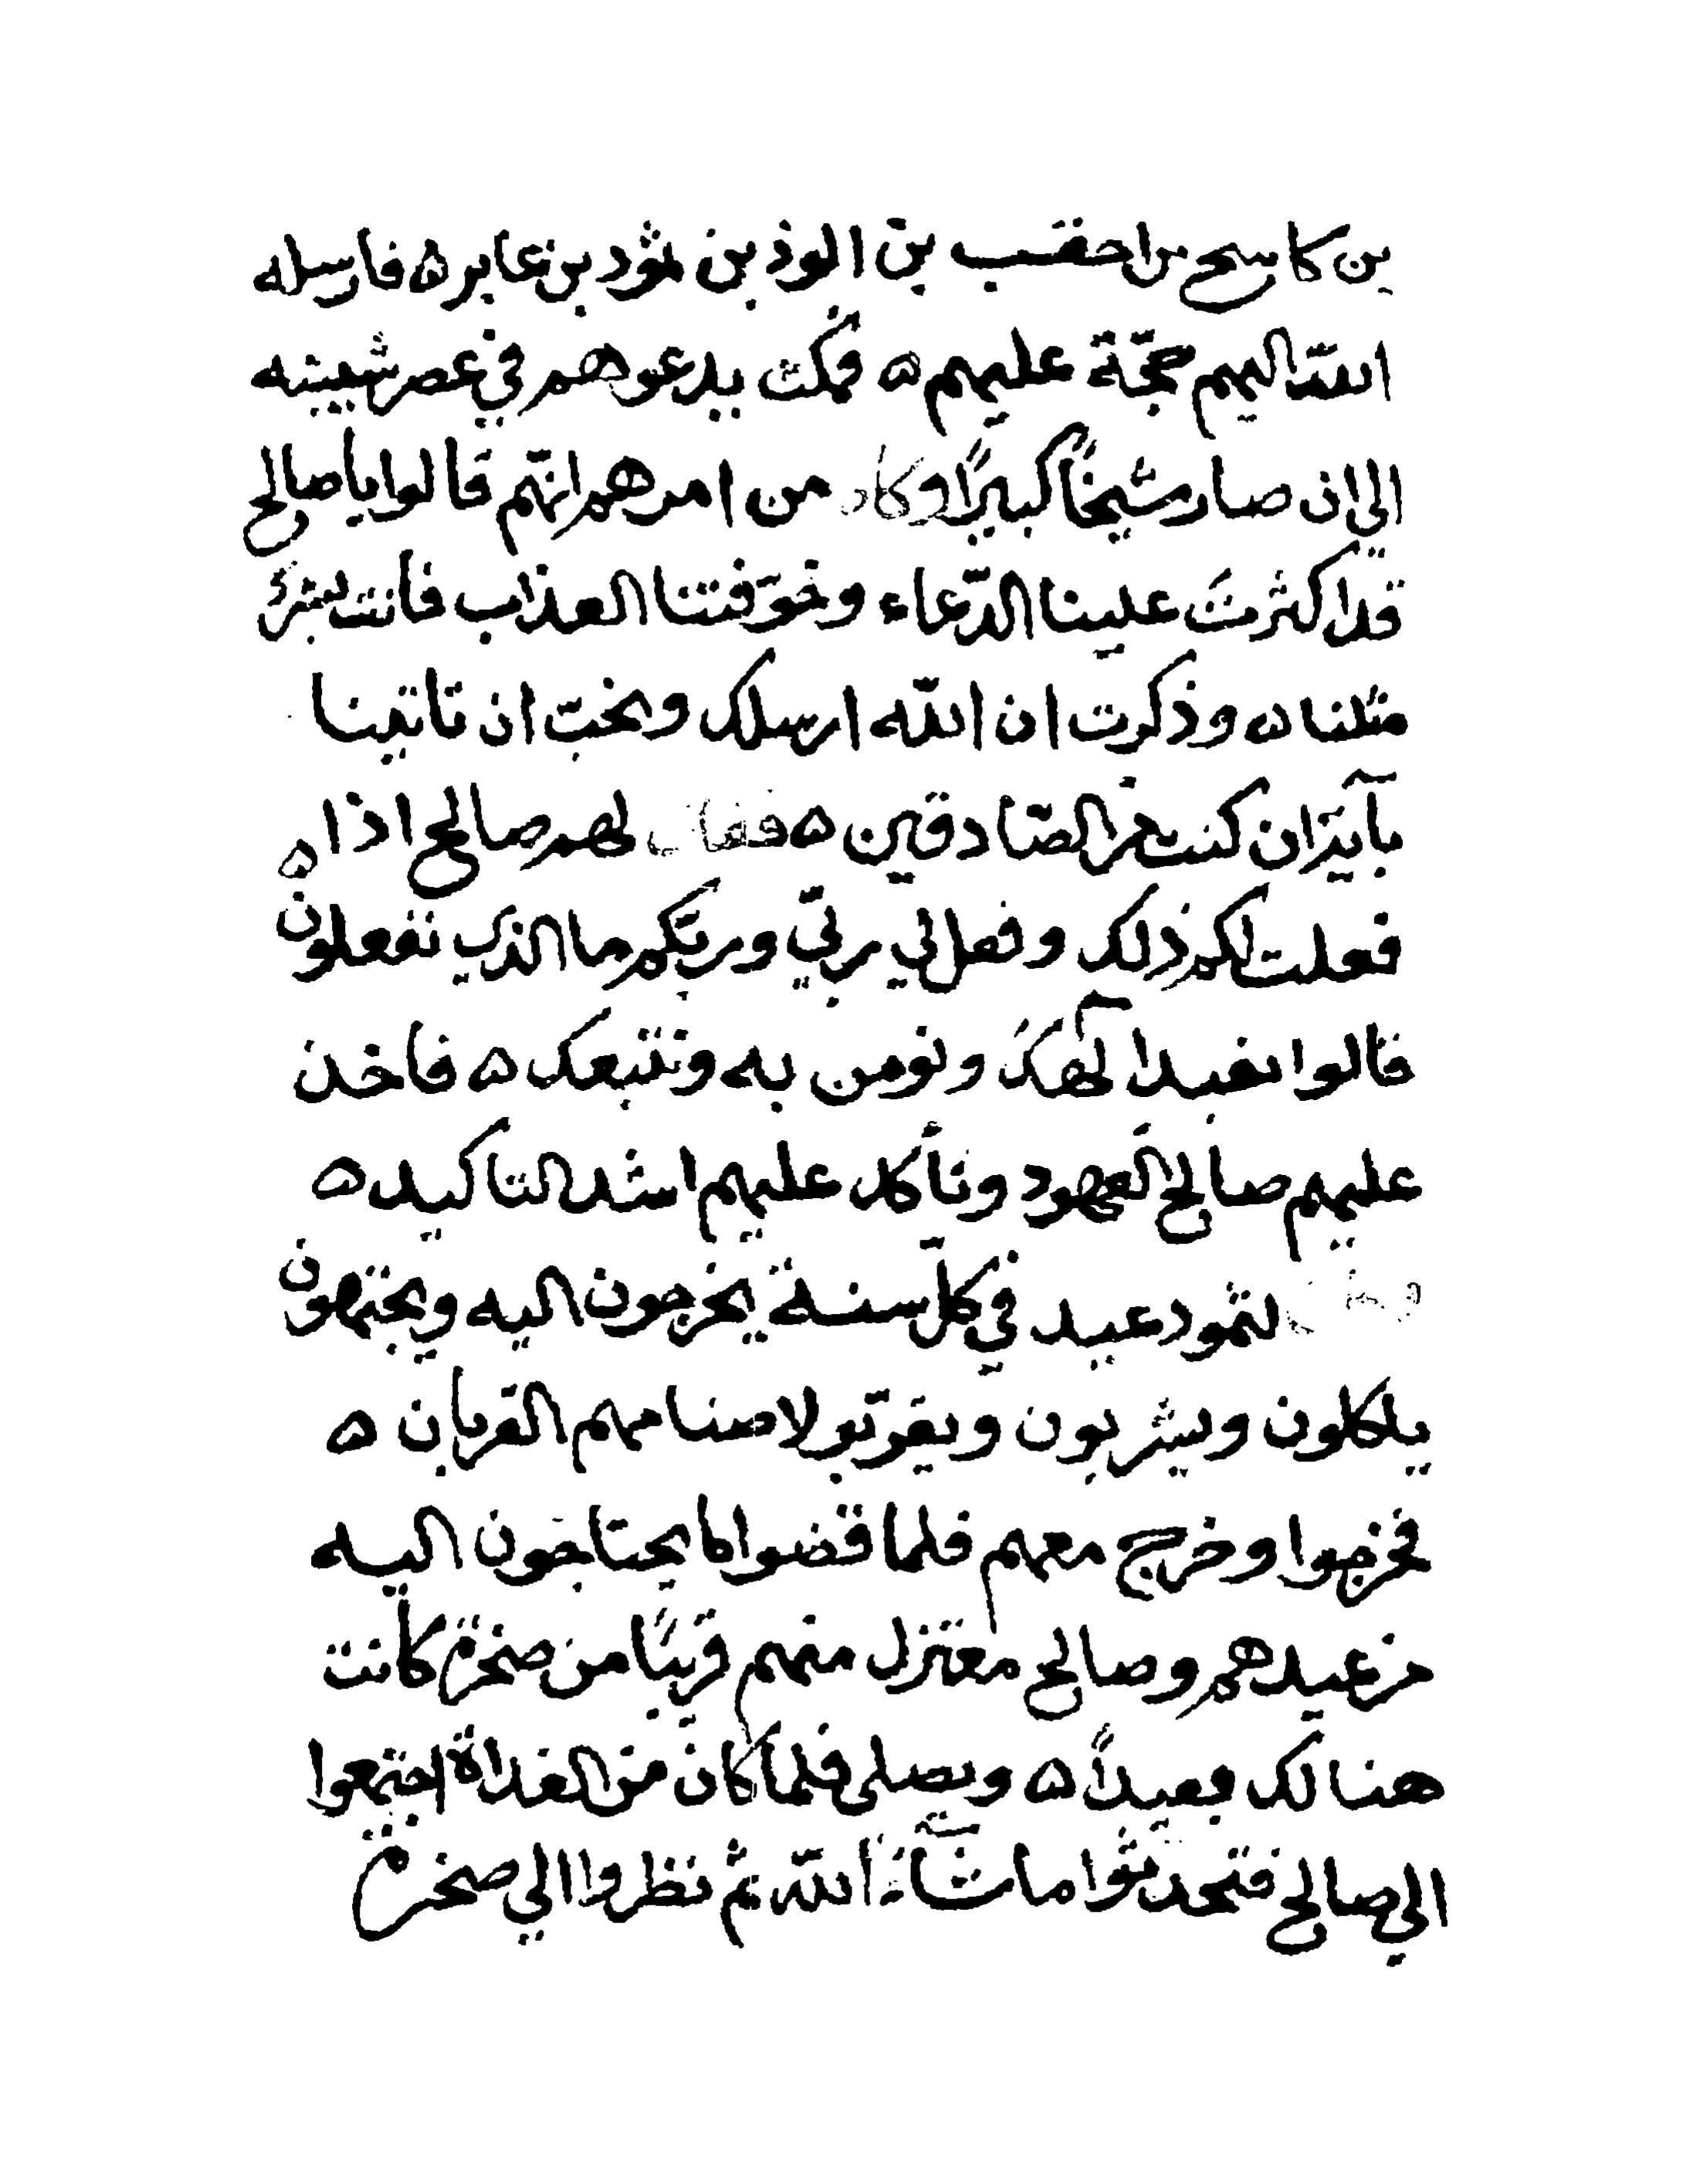 بن كاسح بن احقب بن الوذ بن ثمود بن عابر ۵ فارسله
الله اليهم حجّة عليهم ۵ فمكث يدعوهم في عصر شبيبته
الى ان صار شيخًا كبيرًا وكان من امرهم انهّم قالوا يا صالح
قد اكثرتَ علينا الدّعاء وخوّفتنا العذاب فانت بشرٌ
مثلنا ۵ وذكرت ان اللّه ارسلك ونحبّ ان تاتينا
بآيةٍ ان كنت من الصّادقين ۵ فقال لهم صالح اذا ۵
فعلت لكم ذلك وفعل لي ربّي وربّكم ما الذي تفعلون
قالوا نعبد الهكَ ونومن به ونتبعك ۵ فاخذ
عليهم صالح العهود وتأكد عليهم اشد التاكيد ۵
وكان لثمود عيد في كلّ سنة يخرجون اليه ويجتهون
ياكلون ويشربون ويقرّبو لاصنامهم القربان ۵
فخرجوا وخرج معهم فلما قضوا ما يحتاجون اليه
من عيدهم وصالح معتزل منهم قريبًا من صخرة كانت
هنالك بعيدًا ۵ ويصلى فلما كان من الغداة اجتمعوا
الي صالح فتحدثوا ما شآء اللّه ثم نظروا الي صخرة